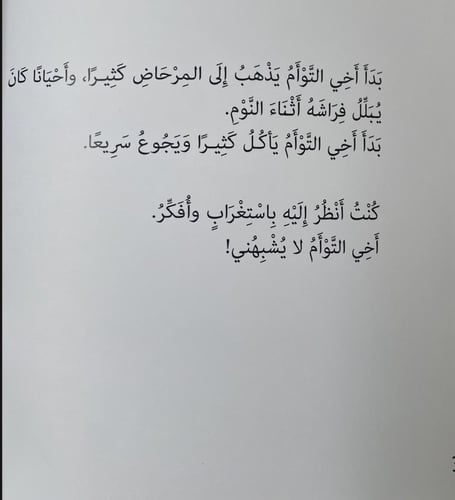 بَدَأَ أَخِي التَّوْأَمُ يَذْهَبُ إِلَى المِرْحَاضِ كَثِيرًا، وأَحْيَانًا كَانَ
يُبَلِّلُ فِرَاشَهُ أَثْنَاءَ النَّوْمِ.
بَدَأَ أَخِي التَّوْأَمُ يَأكُلُ كَثِيرًا وَيَجُوعُ سَرِيعًا.
كُنْتُ أَنْظُرُ إِلَيْهِ بِاسْتِغْرَابٍ وأُفَكِّرُ.
أَخِي التَّوْأَمُ لا يُشْبِهُني!